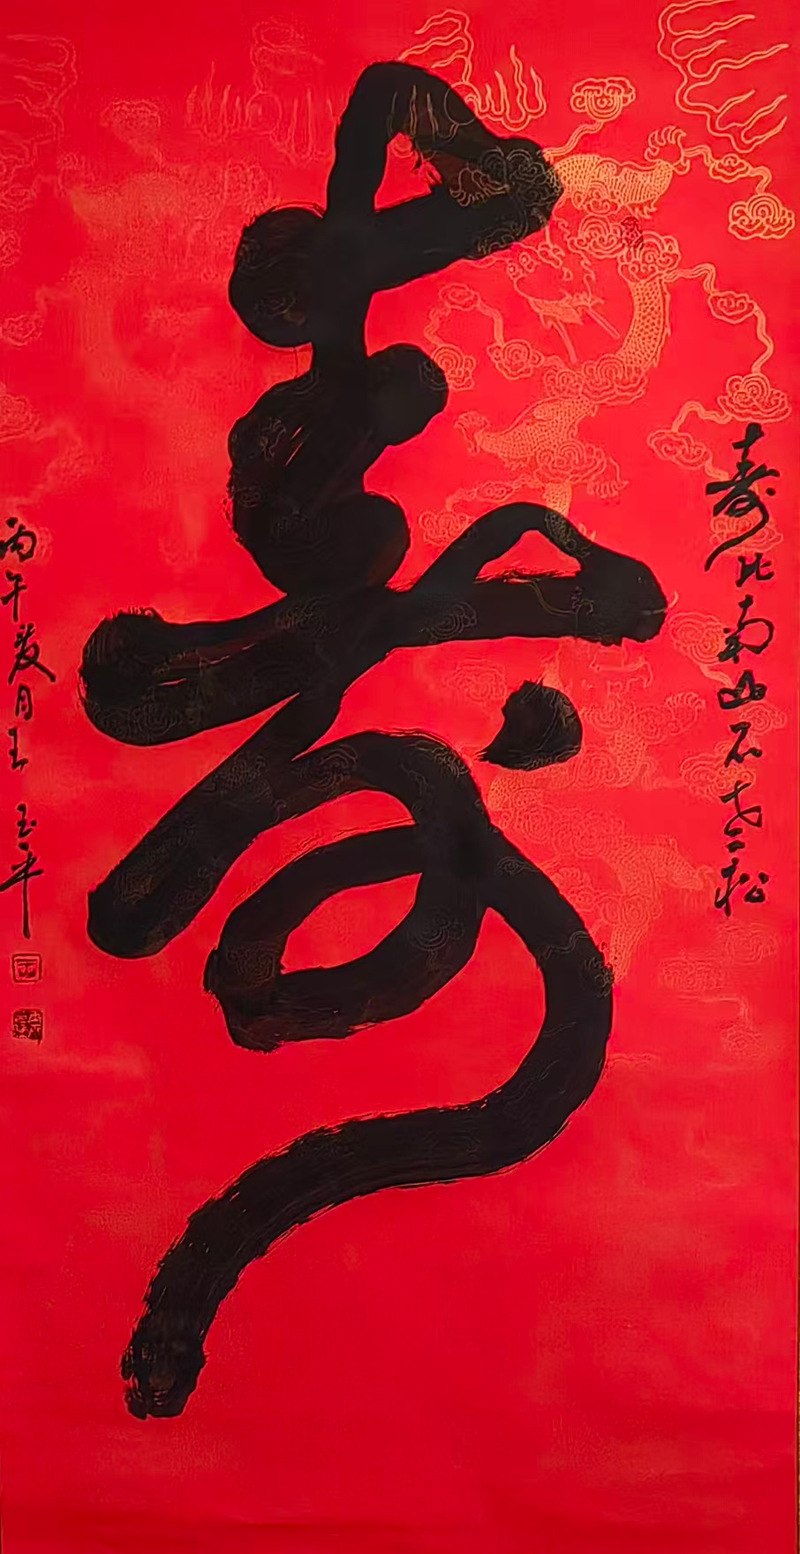 寿
寿比南山不老松
丙午岁月王玉平